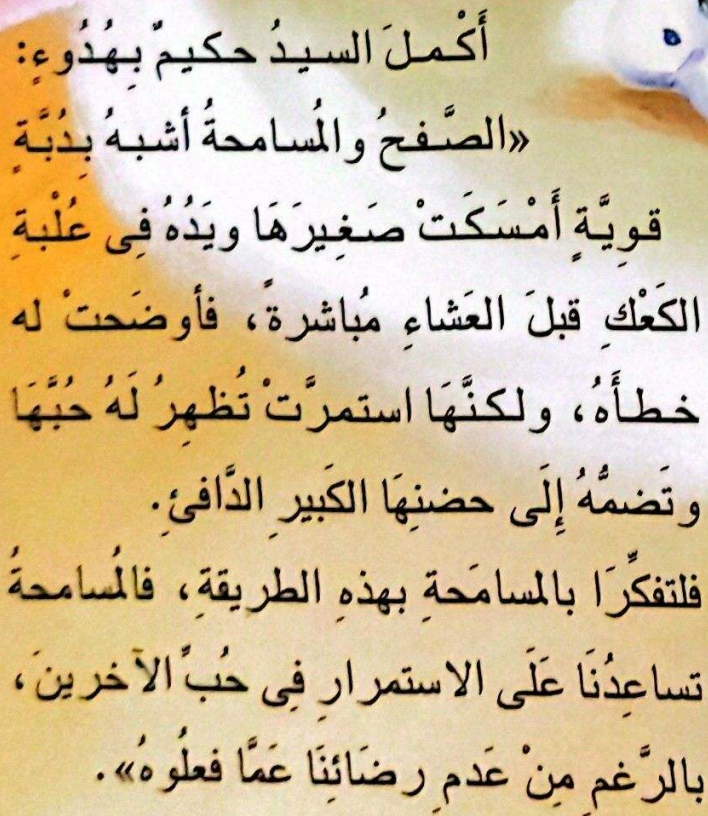 أَكْملَ السيدُ حكيمٌ بِهُدُوءٍ:
«الصَّفحُ والمُسامحةُ أشبهُ بِدُبَّةٍ
قويَّةٍ أَمْسَكَتْ صَغِيرَهَا ويَدُهُ فِى عُلْبةِ
الكَعْكِ قبلَ العَشاءِ مُباشرةً، فأوضَحتْ له
خطأَهُ، ولكنَّهَا استمرَّتْ تُظهِرُ لَهُ حُبَّهَا
وتَضمُّهُ إِلَى حضنِهَا الكَبيرِ الدَّافئِ.
فلتفكِّرَا بالمسامَحةِ بهذهِ الطريقةِ، فالمُسامحةُ
تساعِدُنَا عَلَى الاستمرارِ فِى حُبِّ الآخرينَ،
بالرَّغمِ مِنْ عَدمِ رضَائِنَا عَمَّا فعلُوهُ».